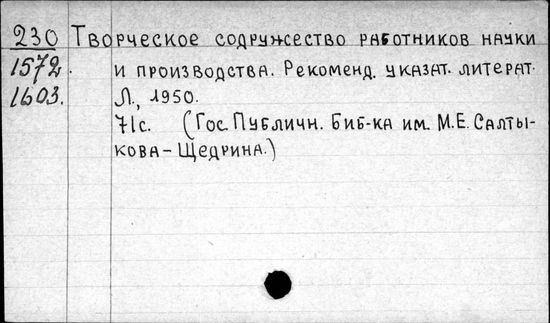 230 Творческое содружество работников науки
1572. и производства. Рекоменд. указат. литерат.
1603. Л., 1950.
71с. (Гос. Публичн. Биб-ка им. М.Е. Салты-
кова-Щедрина.)